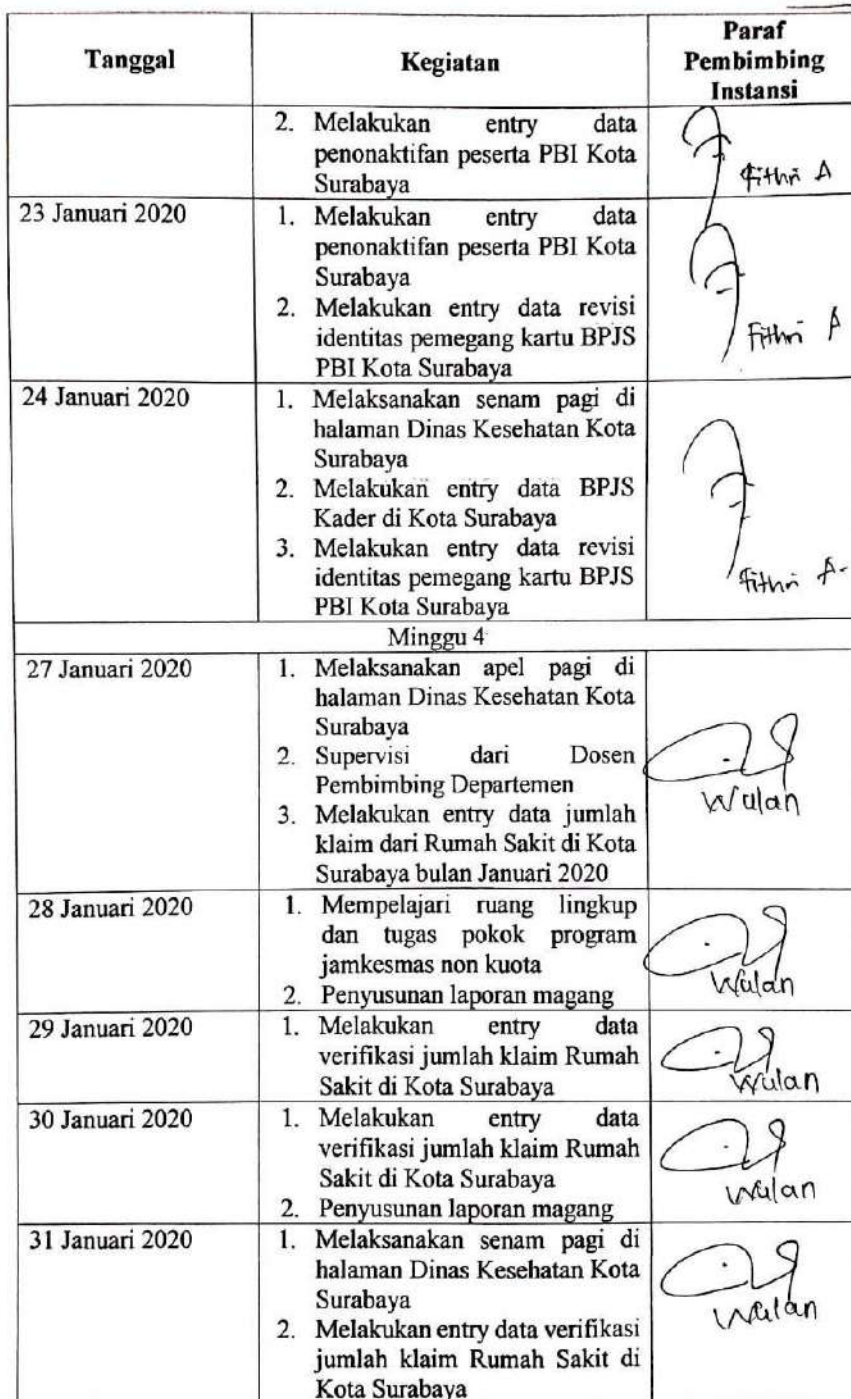 Tanggal
Kegiatan
Paraf
Pembimbing
Instansi
2. Melakukan entry data
penonaktifan peserta PBI Kota
Surabaya
Fithri A
23 Januari 2020
1. Melakukan entry data
penonaktifan peserta PBI Kota
Surabaya
2. Melakukan entry data revisi
identitas pemegang kartu BPJS
PBI Kota Surabaya
Fithri A
24 Januari 2020
1. Melaksanakan senam pagi di
halaman Dinas Kesehatan Kota
Surabaya
2. Melakukan entry data BPJS
Kader di Kota Surabaya
3. Melakukan entry data revisi
identitas pemegang kartu BPJS
PBI Kota Surabaya
Fithri A-
Minggu 4
27 Januari 2020
1. Melaksanakan apel pagi di
halaman Dinas Kesehatan Kota
Surabaya
2. Supervisi dari Dosen
Pembimbing Departemen
3. Melakukan entry data jumlah
klaim dari Rumah Sakit di Kota
Surabaya bulan Januari 2020
Wulan
28 Januari 2020
1. Mempelajari ruang lingkup
dan tugas pokok program
jamkesmas non kuota
2. Penyusunan laporan magang
Wulan
29 Januari 2020
1. Melakukan entry data
verifikasi jumlah klaim Rumah
Sakit di Kota Surabaya
Wulan
30 Januari 2020
1. Melakukan entry data
verifikasi jumlah klaim Rumah
Sakit di Kota Surabaya
2. Penyusunan laporan magang
Wulan
31 Januari 2020
1. Melaksanakan senam pagi di
halaman Dinas Kesehatan Kota
Surabaya
2. Melakukan entry data verifikasi
jumlah klaim Rumah Sakit di
Kota Surabaya
Wulan